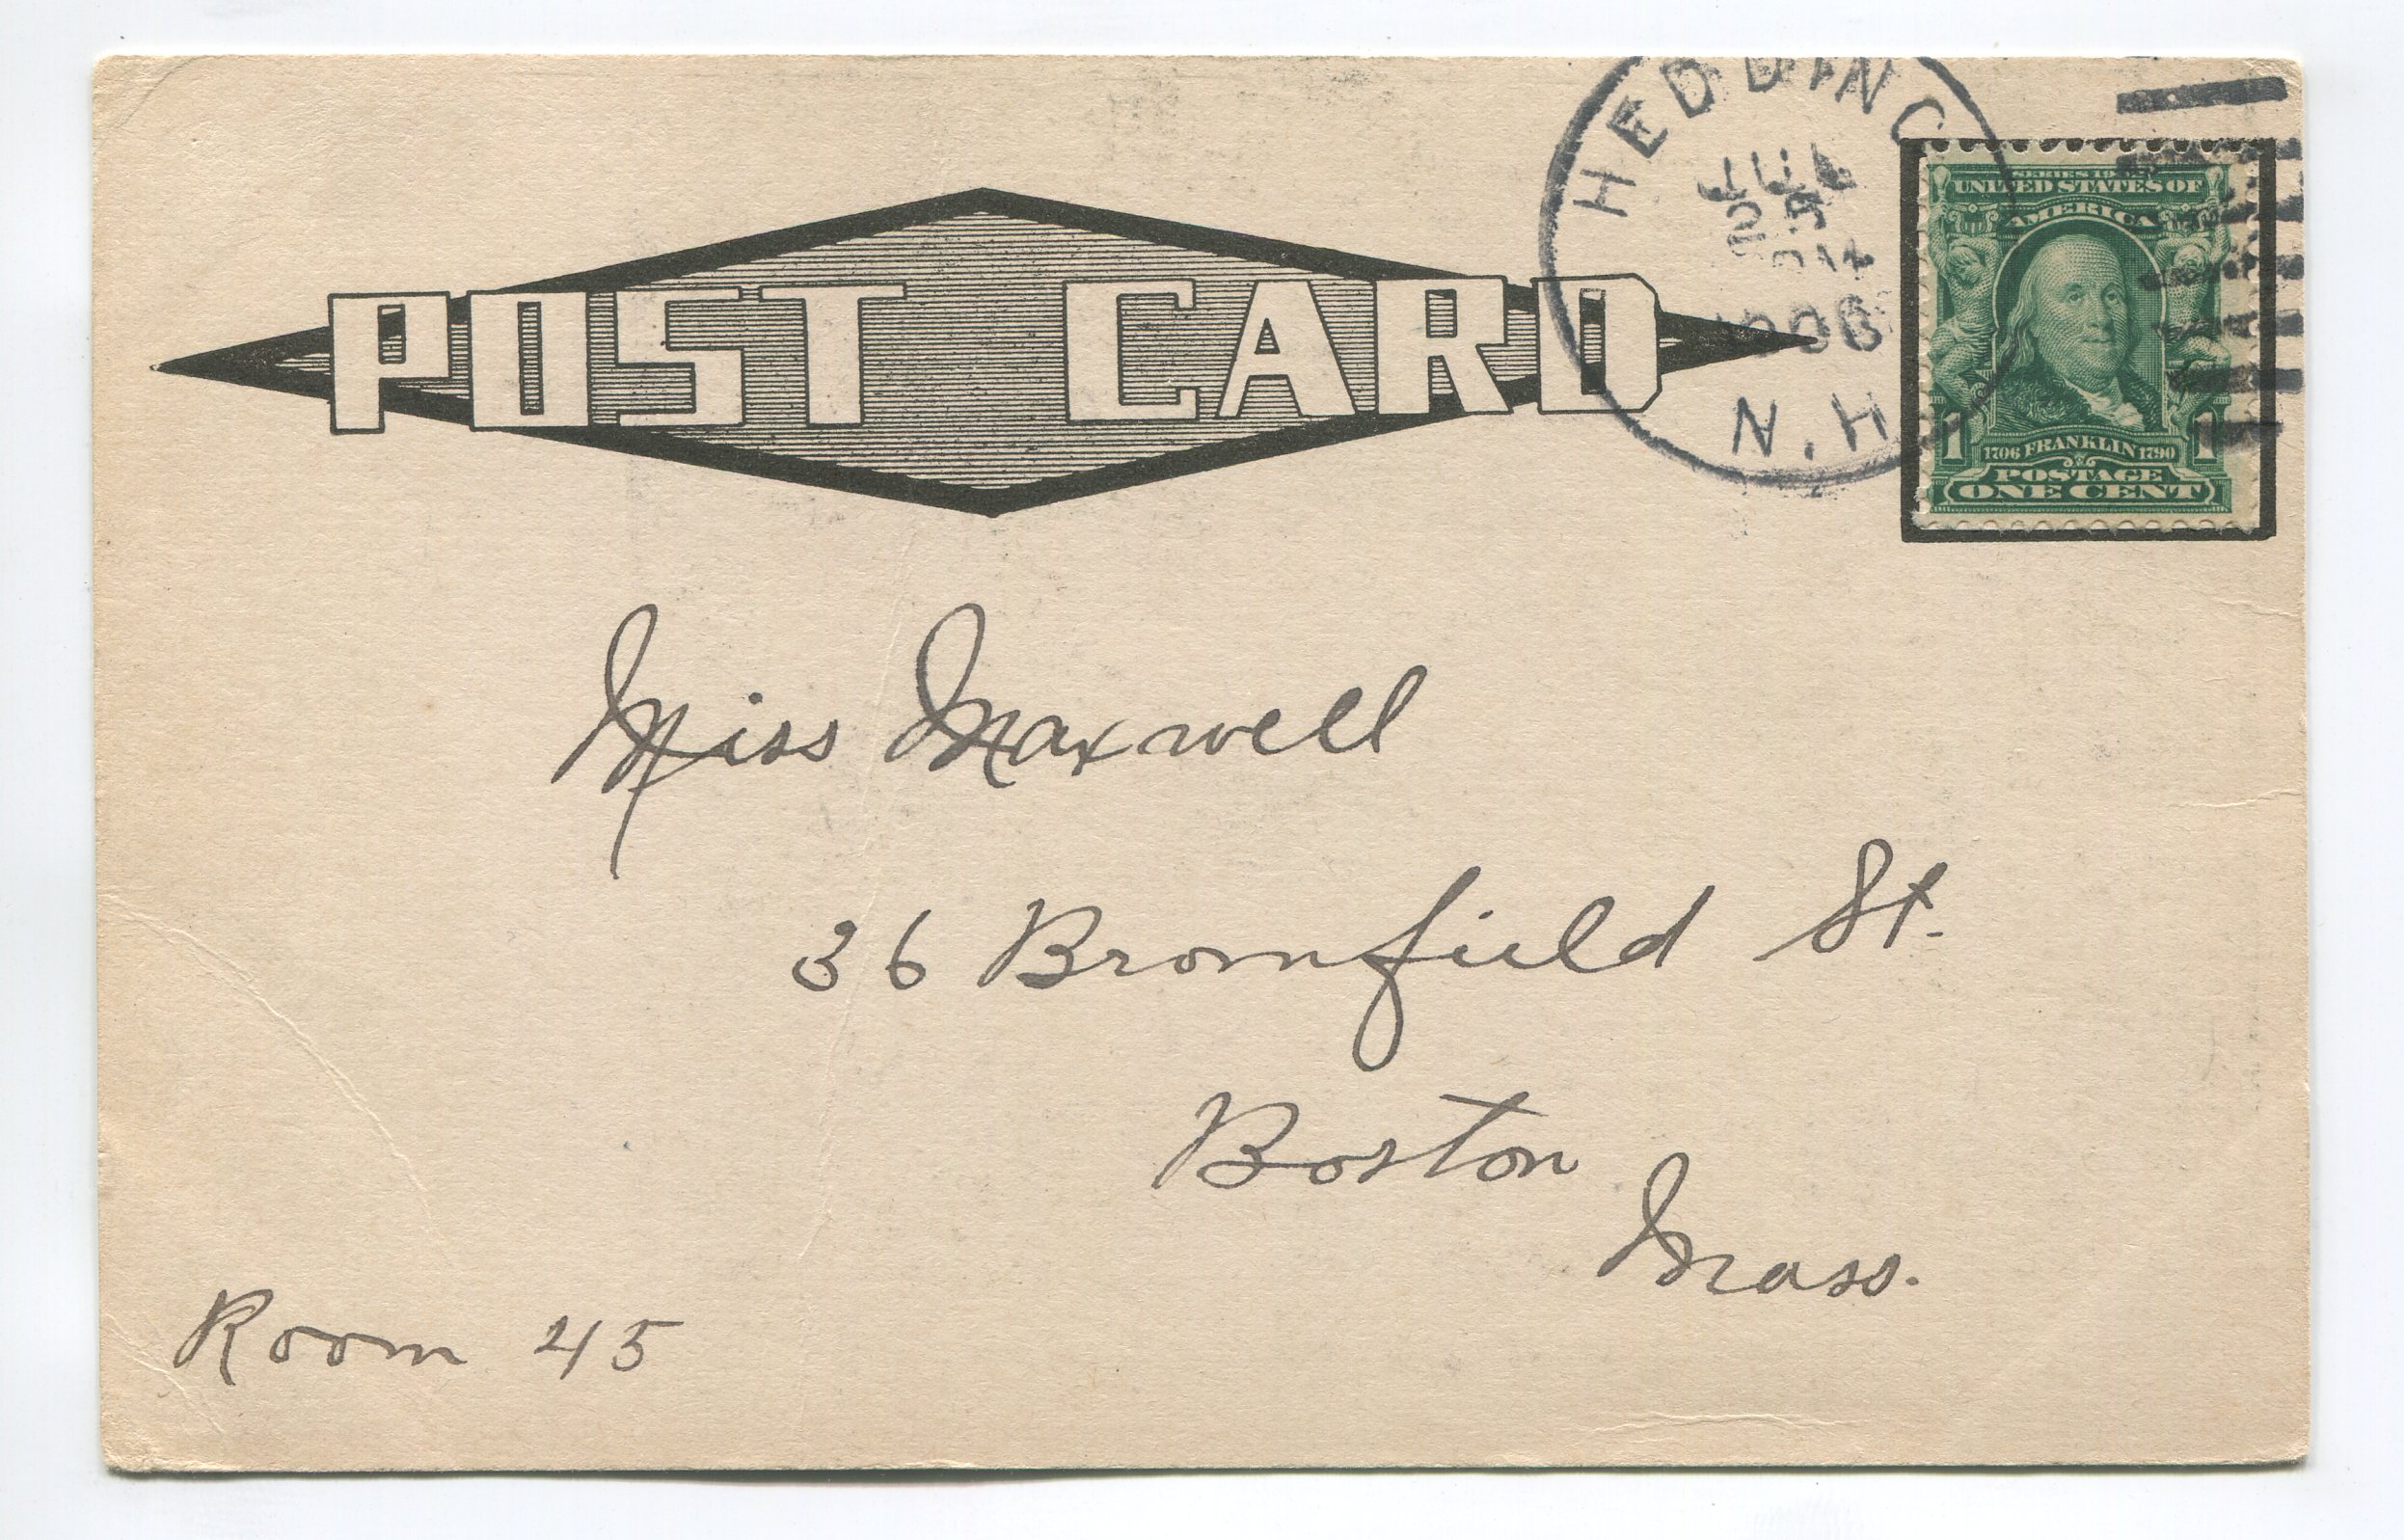 HEDDING
JUL
1906
N.H.
POST CARD
SERIES
UNITED STATES OF
AMERICA
1 1
1706 FRANKLIN 1790
POSTAGE
ONE CENT
Miss Maxwell
36 Bromfield St.
Boston
Mass.
Room 45